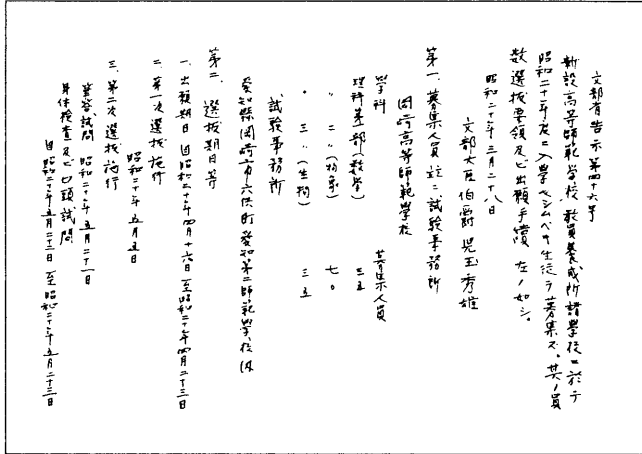 文部省告示第四十六号
新設高等師範学校、教員養成所諸学校ニ於テ
昭和二十年度ニ入学セシムベキ生徒ヲ募集ス。其ノ員
数選抜要領及ビ出願手續左ノ如シ。
昭和二十年三月二十八日
文部大臣伯爵 児玉秀雄
第一、募集人員並ニ試験事務所
岡崎高等師範學校
學科 募集人員
理科第一部(数學) 三五
〃 二〃(物象) 七〇
〃 三〃(生物) 三五
試験事務所
愛知縣岡崎市六供町愛知第二師範學校内
第二、選抜期日等
一、出願期日 自昭和二十年四月十六日至昭和二十年四月二十三日
二、第一次選抜施行
昭和二十年五月五日
三、第二次選抜施行
筆答試問 昭和二十年五月二十一日
身体検査及ビ口頭試問
自昭和二十年五月二十二日至昭和二十年五月二十三日